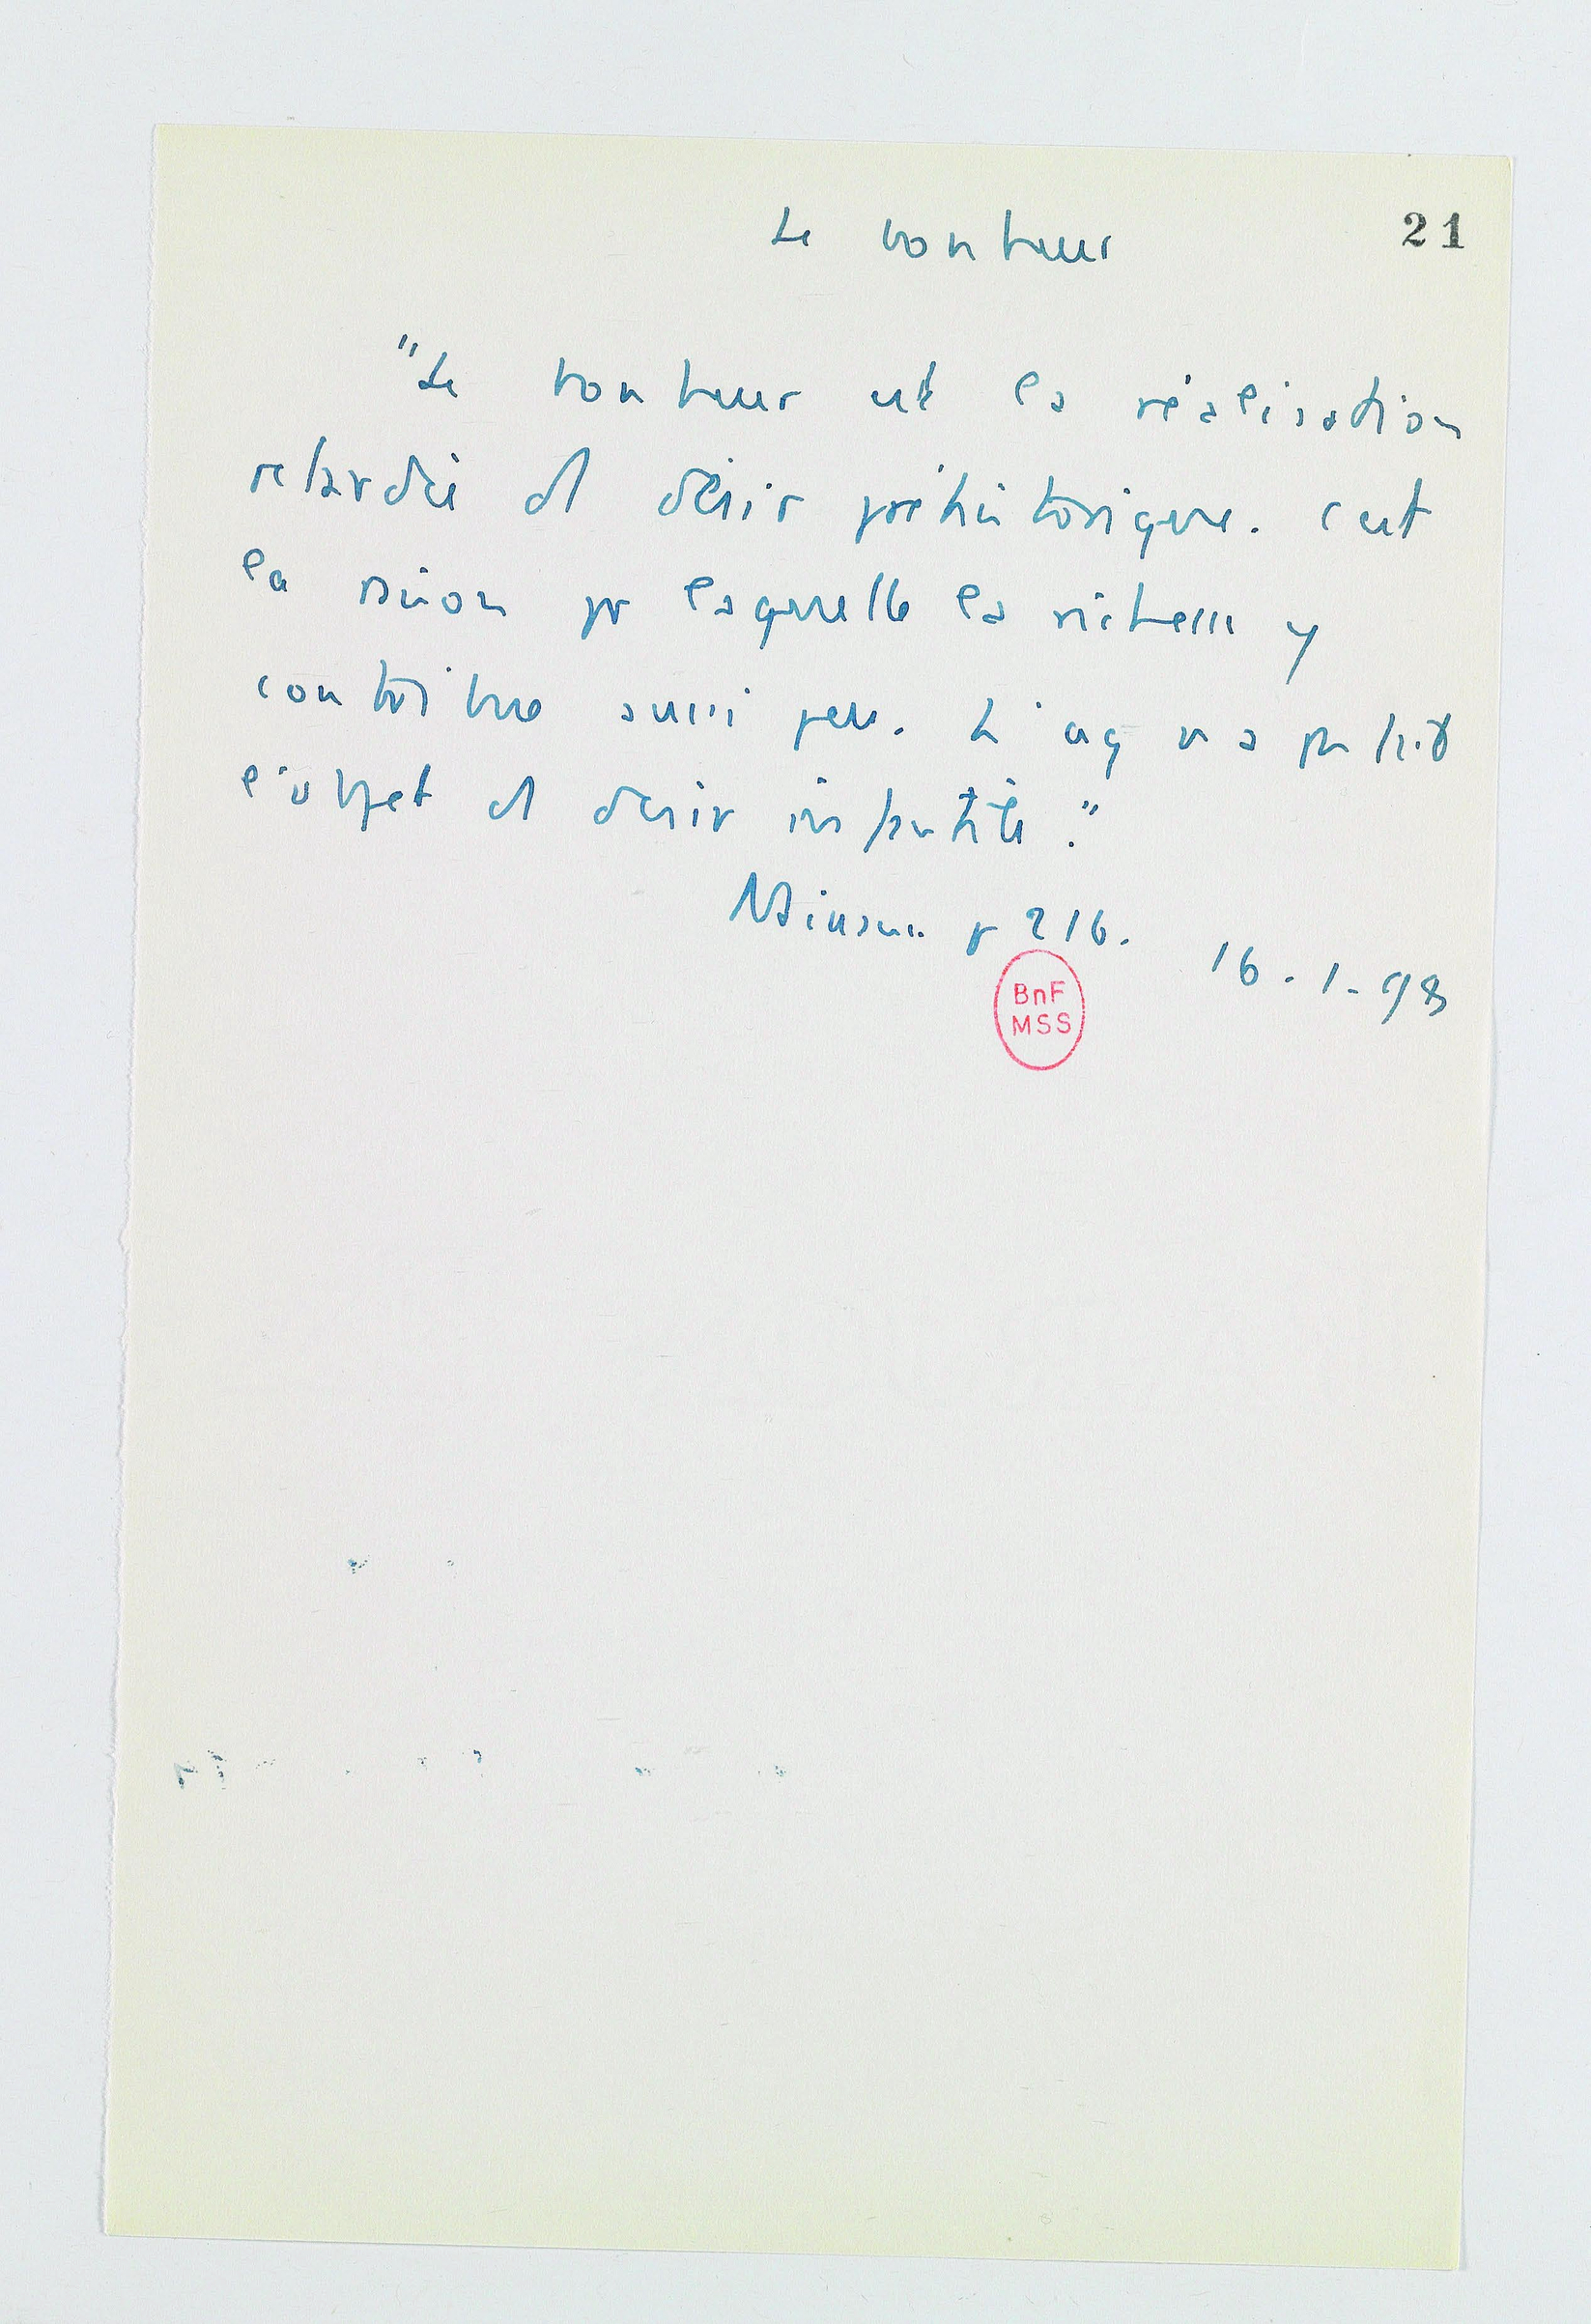 21
Le bonheur
"Le bonheur est la réalisation
retardée d'1 désir préhistorique. C'est
la raison pr laquelle la richesse y
contribue aussi peu. L'arg n'a pas été
l'objet d'1 désir infantile."
Naissance p 216. 16-1-98
BnF
MSS